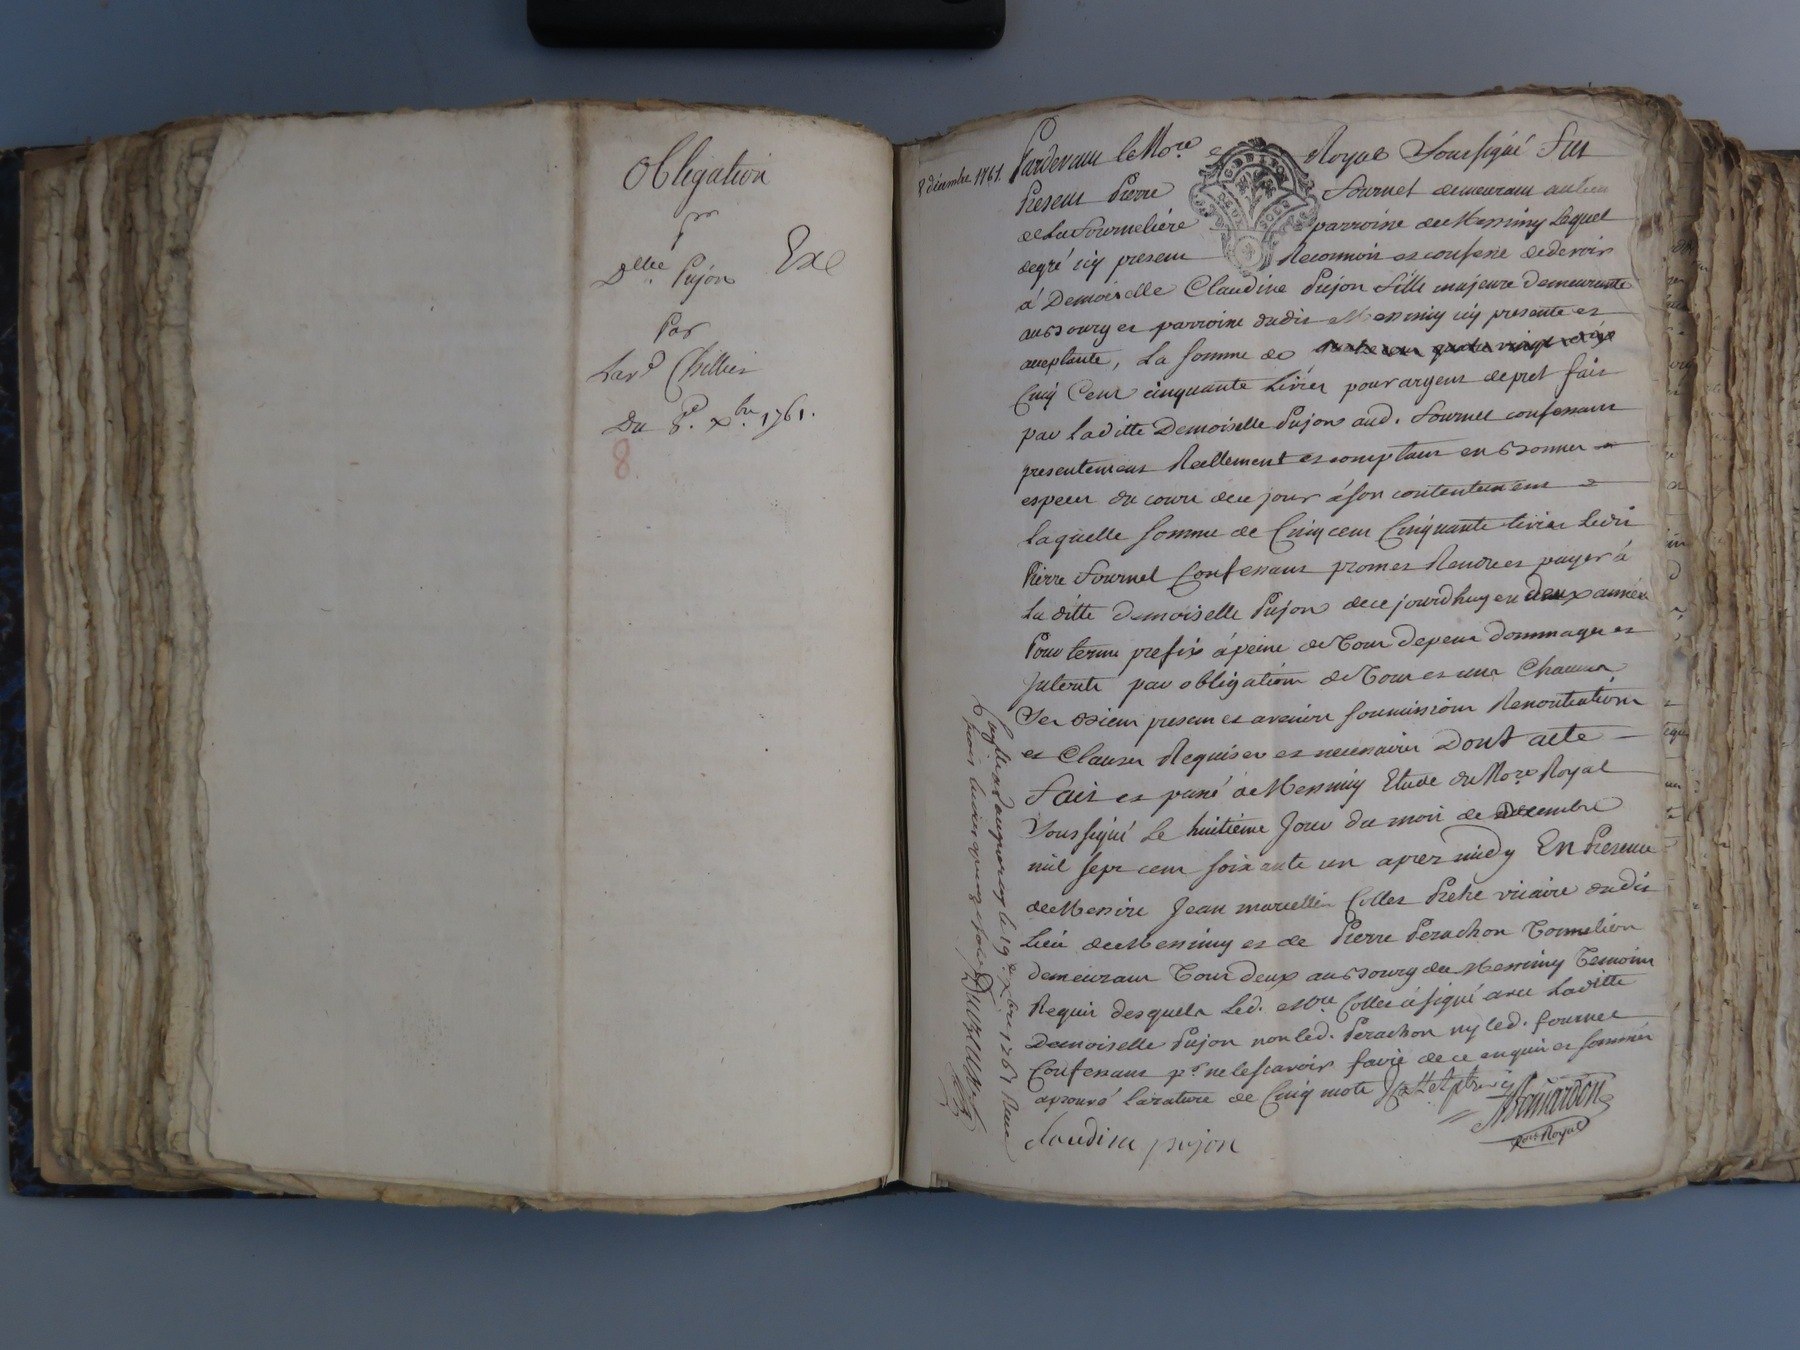 Obligation
pr
Dlle. Pujon Exé
Par
Du 8e. Xbre 1761.
8
8 décembre 1761.
Pardevant le Nore Royal Soussigné fut
Present Pierre Fournel demeurant au lieu
de La Fourneliere parroisse de Messimy Lequel
de gré icy present Reconnoit et confesse de devoir
à Demoiselle Claudine Pujon fille majeure demeurante
au Bourg et parroisse dudit Messimy icy presente et
acceptante, La somme de
Cinq Cent cinquante Livres pour argent de pret fait
par laditte Demoiselle Pujon aud. Fournel confessant
presentement Reellement et comptant en Bonnes
especes du cours de ce jour à son contentement
Laquelle somme de Cinq cent Cinquante livres Ledit
Pierre Fournel Confessant promet Rendre et payer à
la ditte Demoiselle Pujon de ce jourdhuy en deux années
Pour terme prefix à peine de Tout depens dommages et
Interets par obligation de Tous et uns Chacuns
Ses Biens presents et avenir soumissions Renontiations
et Clauses Requises et necessaires Dont acte
Fait et passé à Messimy Etude du Nore Royal
Soussigné Le huitième Jour du mois de Décembre
mil sept cent soixante un aprez midy En Presence
de Messire Jean marcellin Collet Pretre vicaire dudit
Lieu de Messimy et de Pierre Perachon Tonnelier
demeurant Tous deux au Bourg de Messimy Temoins
Requis desquels Led. Mre Collet à signé avec Laditte
Demoiselle Pujon non led. Perachon ny led. Fournel
Confessant pr. ne le scavoir faire de ce enquis et sommés
aprouvé La rature de Cinq mots
claudine pujon
Nore Royal
le 19e. Xbre 1761 Reçu